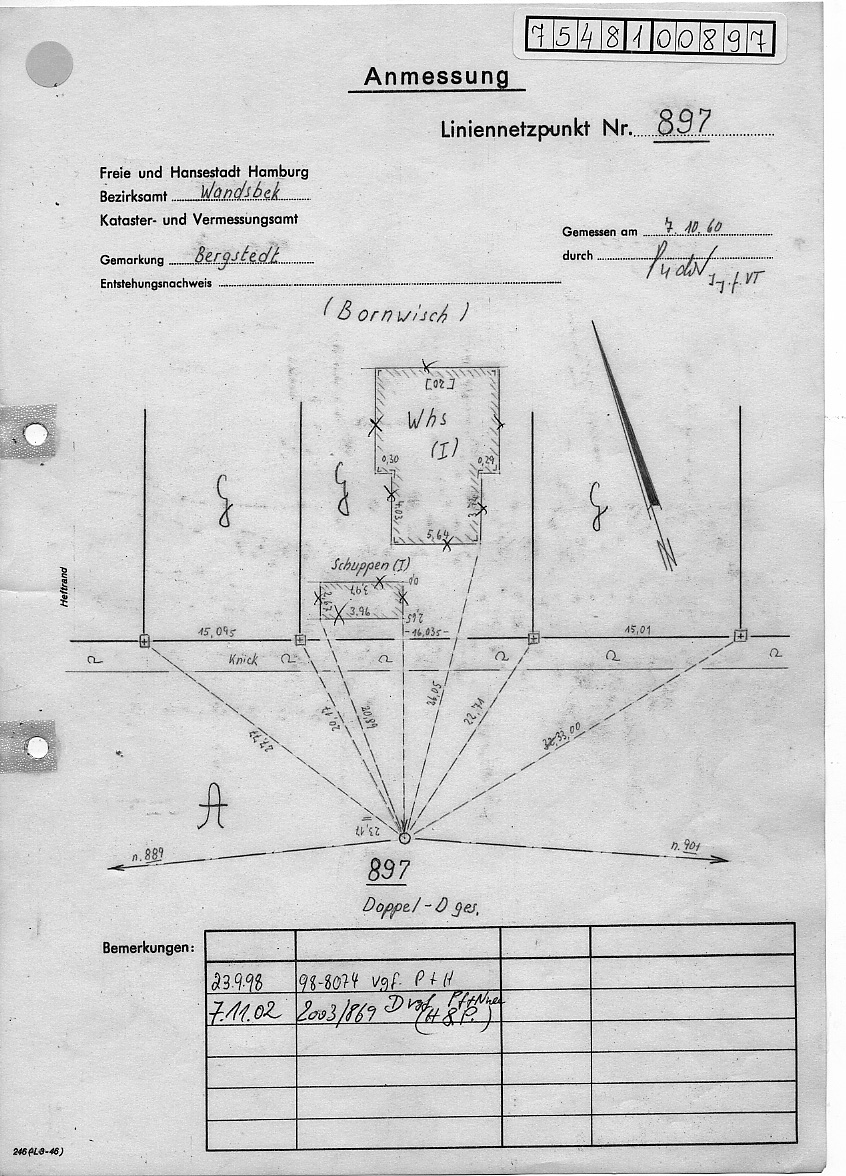 7548100897
Anmessung
Liniennetzpunkt Nr. 897
Freie und Hansestadt Hamburg
Bezirksamt Wandsbek
Kataster- und Vermessungsamt
Gemessen am 7.10.60
Gemarkung Bergstedt
durch
Entstehungsnachweis
(Bornwisch)
[20]
Whs
(I)
0,30
0,29
G
G
G
4,03
5,64
Schuppen (I)
0,0
3,97
2,67
3,96
2,65
Heftrand
15,095
-16,035-
15,01
Knick
27,47
20,17
20,89
26,05
22,71
33,00
A
23,17
n. 889
n. 901
897
Doppel-D ges.
Bemerkungen:
23.9.98 98-8074 vgf. P+H
7.11.02 2003/869 D vgf.
(H & P.)